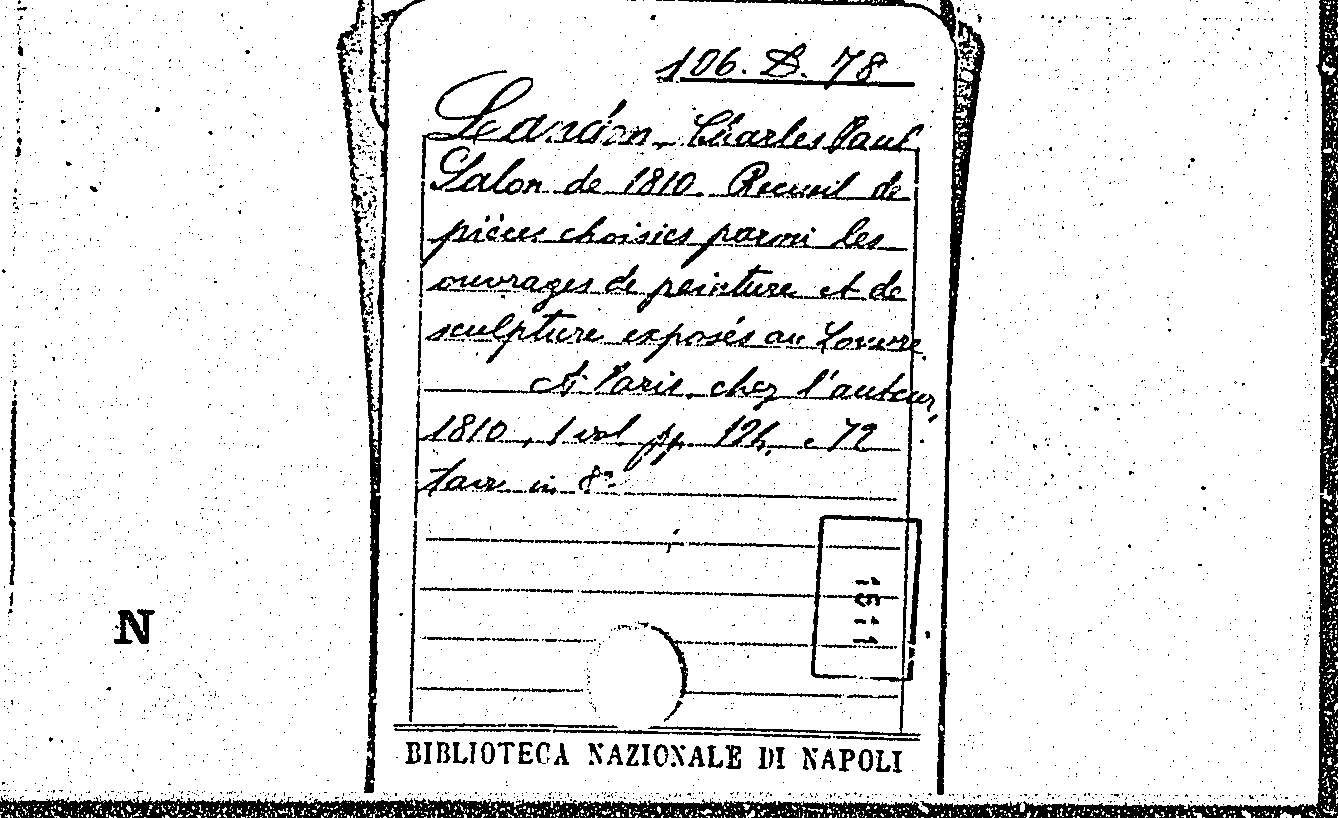 106. D. 78
Landon, Charles Paul
Salon de 1810. Recueil de
pièces choisies parmi les
ouvrages de peinture et de
sculpture exposés au Louvre
A Paris, chez l'auteur,
1810, 1 vol pp. e 72
tavv. in 8°
1511
N
BIBLIOTECA NAZIONALE DI NAPOLI